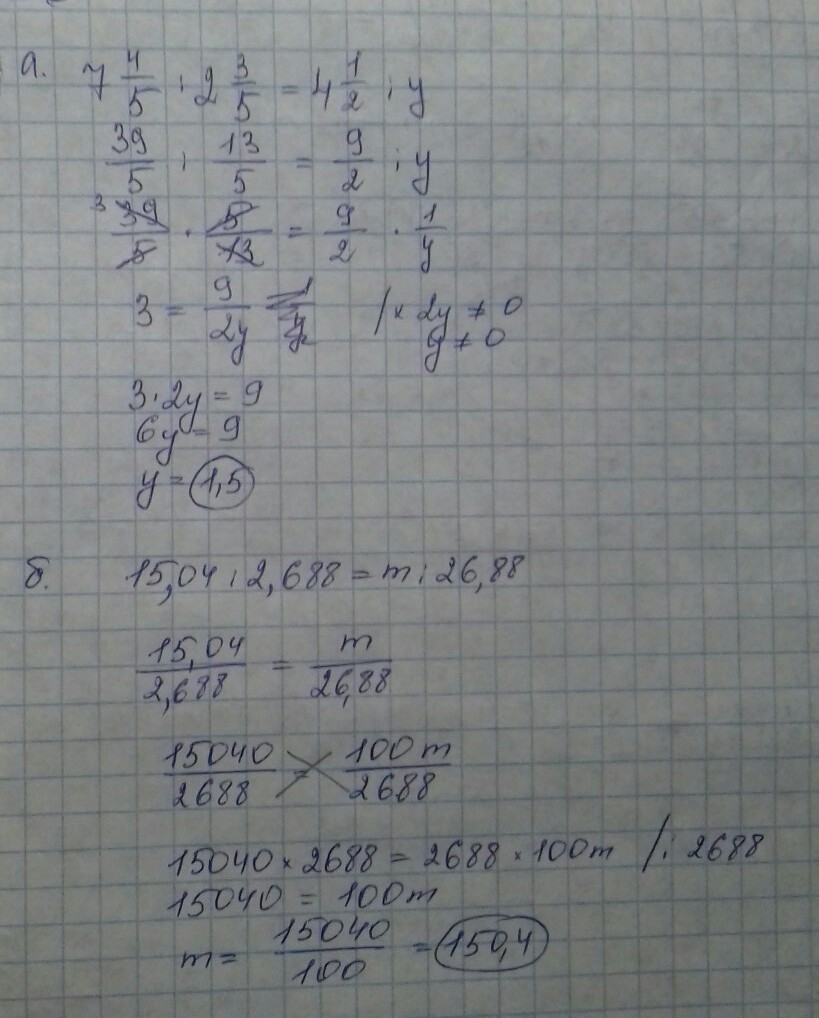 а. 7 4/5 : 2 3/5 = 4 1/2 : y
39/5 : 13/5 = 9/2 : y
3 39/5 · 5/13 = 9/2 · 1/y
3 = 9/2y /× 2y ≠ 0
y ≠ 0
3·2y = 9
6y = 9
y = 1,5
б. 15,04 : 2,688 = m : 26,88
15,04/2,688 = m/26,88
15040/2688 = 100m/2688
15040 × 2688 = 2688 × 100m /: 2688
15040 = 100m
m = 15040/100 = 150,4